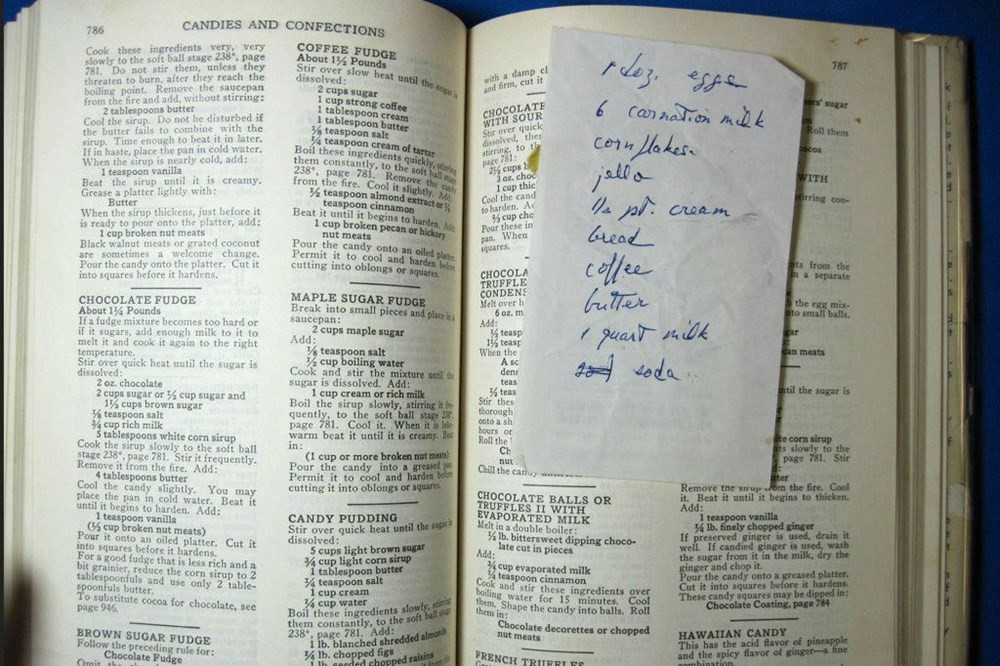 786
CANDIES AND CONFECTIONS
Cook these ingredients very, very
slowly to the soft ball stage 238°, page
781. Do not stir them, unless they
threaten to burn, after they reach the
boiling point. Remove the saucepan
from the fire and add, without stirring:
2 tablespoons butter
Cool the sirup. Do not be disturbed if
the butter fails to combine with the
sirup. Time enough to beat it in later.
If in haste, place the pan in cold water.
When the sirup is nearly cold, add:
1 teaspoon vanilla
Beat the sirup until it is creamy.
Grease a platter lightly with:
Butter
When the sirup thickens, just before it
is ready to pour onto the platter, add:
1 cup broken nut meats
Black walnut meats or grated coconut
are sometimes a welcome change.
Pour the candy onto the platter. Cut it
into squares before it hardens.
CHOCOLATE FUDGE
About 1¼ Pounds
If a fudge mixture becomes too hard or
if it sugars, add enough milk to it to
melt it and cook it again to the right
temperature.
Stir over quick heat until the sugar is
dissolved:
2 oz. chocolate
2 cups sugar or ½ cup sugar and
1½ cups brown sugar
⅛ teaspoon salt
¾ cup rich milk
5 tablespoons white corn sirup
Cook the sirup slowly to the soft ball
stage 238°, page 781. Stir it frequently.
Remove it from the fire. Add:
4 tablespoons butter
Cool the candy slightly. You may
place the pan in cold water. Beat it
until it begins to harden. Add:
1 teaspoon vanilla
(⅓ cup broken nut meats)
Pour it onto an oiled platter. Cut it
into squares before it hardens.
For a good fudge that is less rich and a
bit grainier, reduce the corn sirup to 2
tablespoonfuls and use only 2 table-
spoonfuls butter.
To substitute cocoa for chocolate, see
page 946.
BROWN SUGAR FUDGE
Follow the preceding rule for:
Chocolate Fudge
Omit the
COFFEE FUDGE
About 1½ Pounds
Stir over slow heat until the sugar is
dissolved:
2 cups sugar
1 cup strong coffee
1 tablespoon cream
1 tablespoon butter
⅛ teaspoon salt
¼ teaspoon cream of tartar
Boil these ingredients quickly, stirring
them constantly, to the soft ball stage
238°, page 781. Remove the candy
from the fire. Cool it slightly. Add:
½ teaspoon almond extract or ½
teaspoon cinnamon
Beat it until it begins to harden. Add:
1 cup broken pecan or hickory
nut meats
Pour the candy onto an oiled platter.
Permit it to cool and harden before
cutting into oblongs or squares.
MAPLE SUGAR FUDGE
Break into small pieces and place in a
saucepan:
2 cups maple sugar
Add:
⅛ teaspoon salt
½ cup boiling water
Cook and stir the mixture until the
sugar is dissolved. Add:
1 cup cream or rich milk
Boil the sirup slowly, stirring it fre-
quently, to the soft ball stage 238°,
page 781. Cool it. When it is luke-
warm beat it until it is creamy. Beat
in:
(1 cup or more broken nut meats)
Pour the candy into a greased pan.
Permit it to cool and harden before
cutting it into oblongs or squares.
CANDY PUDDING
Stir over quick heat until the sugar is
dissolved:
5 cups light brown sugar
¾ cup light corn sirup
1 tablespoon butter
¼ teaspoon salt
1 cup cream
¾ cup water
Boil these ingredients slowly, stirring
them constantly, to the soft ball stage
238°, page 781. Add:
1 lb. blanched shredded almonds
¾ lb. chopped figs
1 lb. seeded chopped raisins
787
with a damp cl
and firm, cut it
CHOCOLATE
WITH SOUR
Stir over quick
dissolved, then
stirring, to th
page 781:
2½ cups b
3 oz. choc
1 cup thic
Cool the cand
to harden. Ad
Pour these in
pan. When
squares.
CHOCOLA
TRUFFLE
CONDENS
Melt over h
6 oz. m
Add:
When the
A sc
dens
teas
Stir thes
thorough
onto a sh
hours or
Roll the
Ch
nut
Chill the candy
1 doz. eggs
6 carnation milk
cornflakes.
jello
½ pt. cream
bread
coffee
butter
1 quart milk
soda
CHOCOLATE BALLS OR
TRUFFLES II WITH
EVAPORATED MILK
Melt in a double boiler:
½ lb. bittersweet dipping choco-
late cut in pieces
Add:
¾ cup evaporated milk
¼ teaspoon cinnamon
Cook and stir these ingredients over
boiling water for 15 minutes. Cool
them. Shape the candy into balls. Roll
them in:
Chocolate decorettes or chopped
nut meats
FRENCH TRUFFLES
ers' sugar
Roll them
cocoa
WITH
tirring con-
nts from the
in a separate
h the egg mix-
to small balls.
gar
can meats
til the sugar is
te corn sirup
ts slowly to the
page 781. Stir
tter
Remove the sirup from the fire. Cool
it. Beat it until it begins to thicken.
Add:
1 teaspoon vanilla
¼ lb. finely chopped ginger
If preserved ginger is used, drain it
well. If candied ginger is used, wash
the sugar from it in the milk, dry the
ginger and chop it.
Pour the candy onto a greased platter.
Cut it into squares before it hardens.
These candy squares may be dipped in:
Chocolate Coating, page 784
HAWAIIAN CANDY
This has the acid flavor of pineapple
and the spicy flavor of ginger—a fine
combination.